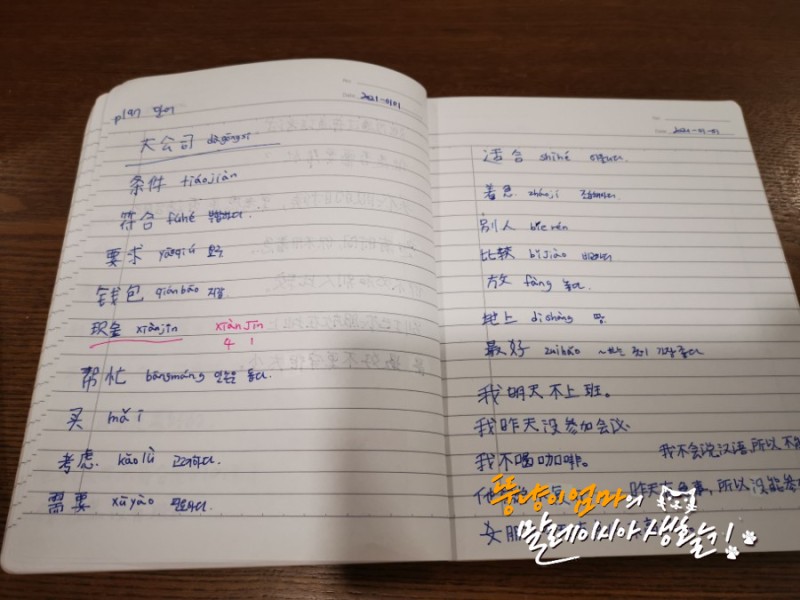 No.
Date. 2021-01-01
plan 단어
大公司 dàgōngsī
条件 tiáojiàn
符合 fúhé 부합하다.
要求 yāoqiú 요구
钱包 qiánbāo 지갑
现金 xiànjīn xiàn jīn
4 1
帮忙 bāngmáng 일손을 돕다.
买 mǎi
考虑. kǎolǜ 고려하다.
需要 xūyào 필요하다.
No.
Date. 2021-01-01
适合 shìhé 어울리다.
着急 zháojí 조급해하다.
别人 bié rén
比较 bǐjiào 비교하다
放 fàng 놓다.
地上 dìshàng 땅.
最好 zuìhǎo ~하는 것이 가장 좋다
我明天不上班。
我昨天没参加会议.
我不喝咖啡。 我不会说汉语,所以不能
他 昨天 ,所以没能参
女朋
뚱냥이엄마의
말레이시아생활기!